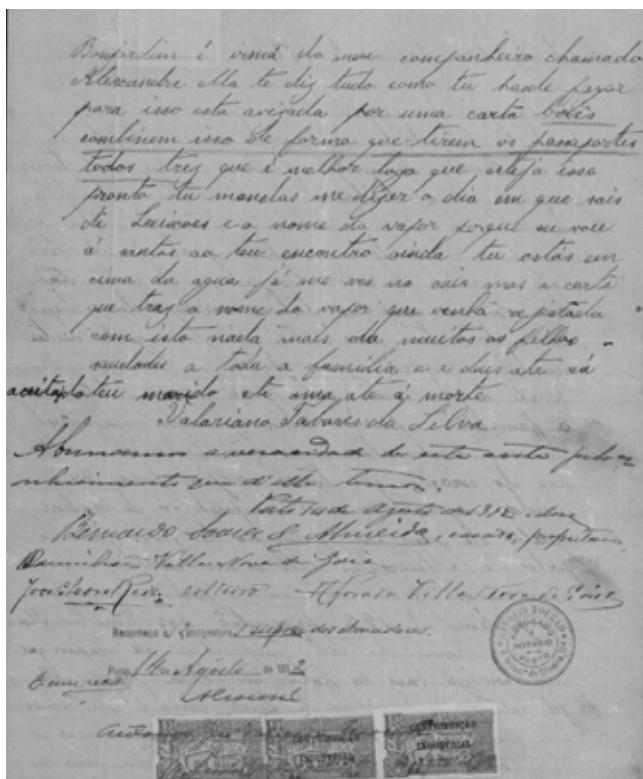 Bomjardim é irmá do meu companheiro chamado
Alexandre ella te diz tudo como tu hande fazer
para isso esta avizada por uma carta bocês
combinem isso de forma que tirem os passaportes
todos trez que é melhor logo que esteja isso
pronto tu mandas me dizer o dia em que sais
de Leixoes e o nome do vapor porque eu vou
á santos ao teu encontro ainda tu estás em
cima da agua já me ves no cais mas a carta
que traz o nome do vapor que venha rejistada
com isto nada mais da muitos os filhos
saudades a toda a familia e a deus ate cá
aceita do teu marido ate ama ate á morte
Valariano Tabares da Silva
Abonamos a veracidade de esta carta pelo co-
nhecimento que d'elle temos.
Porto 14 de Agosto de 1912 e doze
Bernardo Soares d'Almeida, casado, propriet
Villa Nova de Gaia
José solteiro Villa Nova de Gaia
Reconheço a supra dos abonadores.
Porto, 14 de Agosto de 1912
Em
Antonio
NOTARIO
PORTO
CONTRIBUIÇÃO
INDUSTRIAL
CONTRIBUIÇÃO
INDUSTRIAL